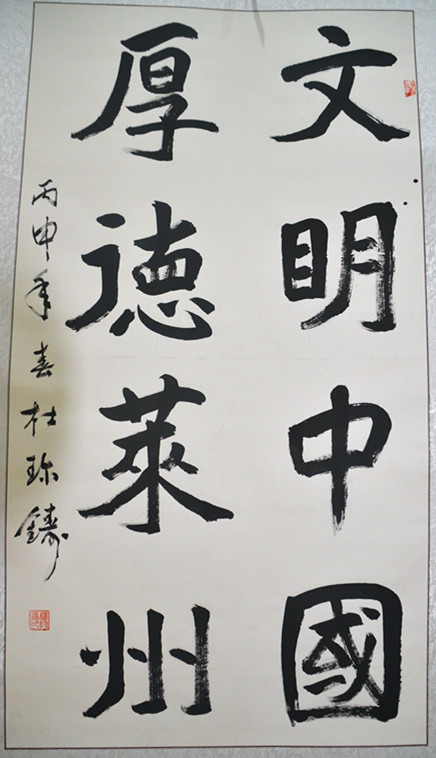 文明中國
厚德萊州
丙申年春杜珎鑄